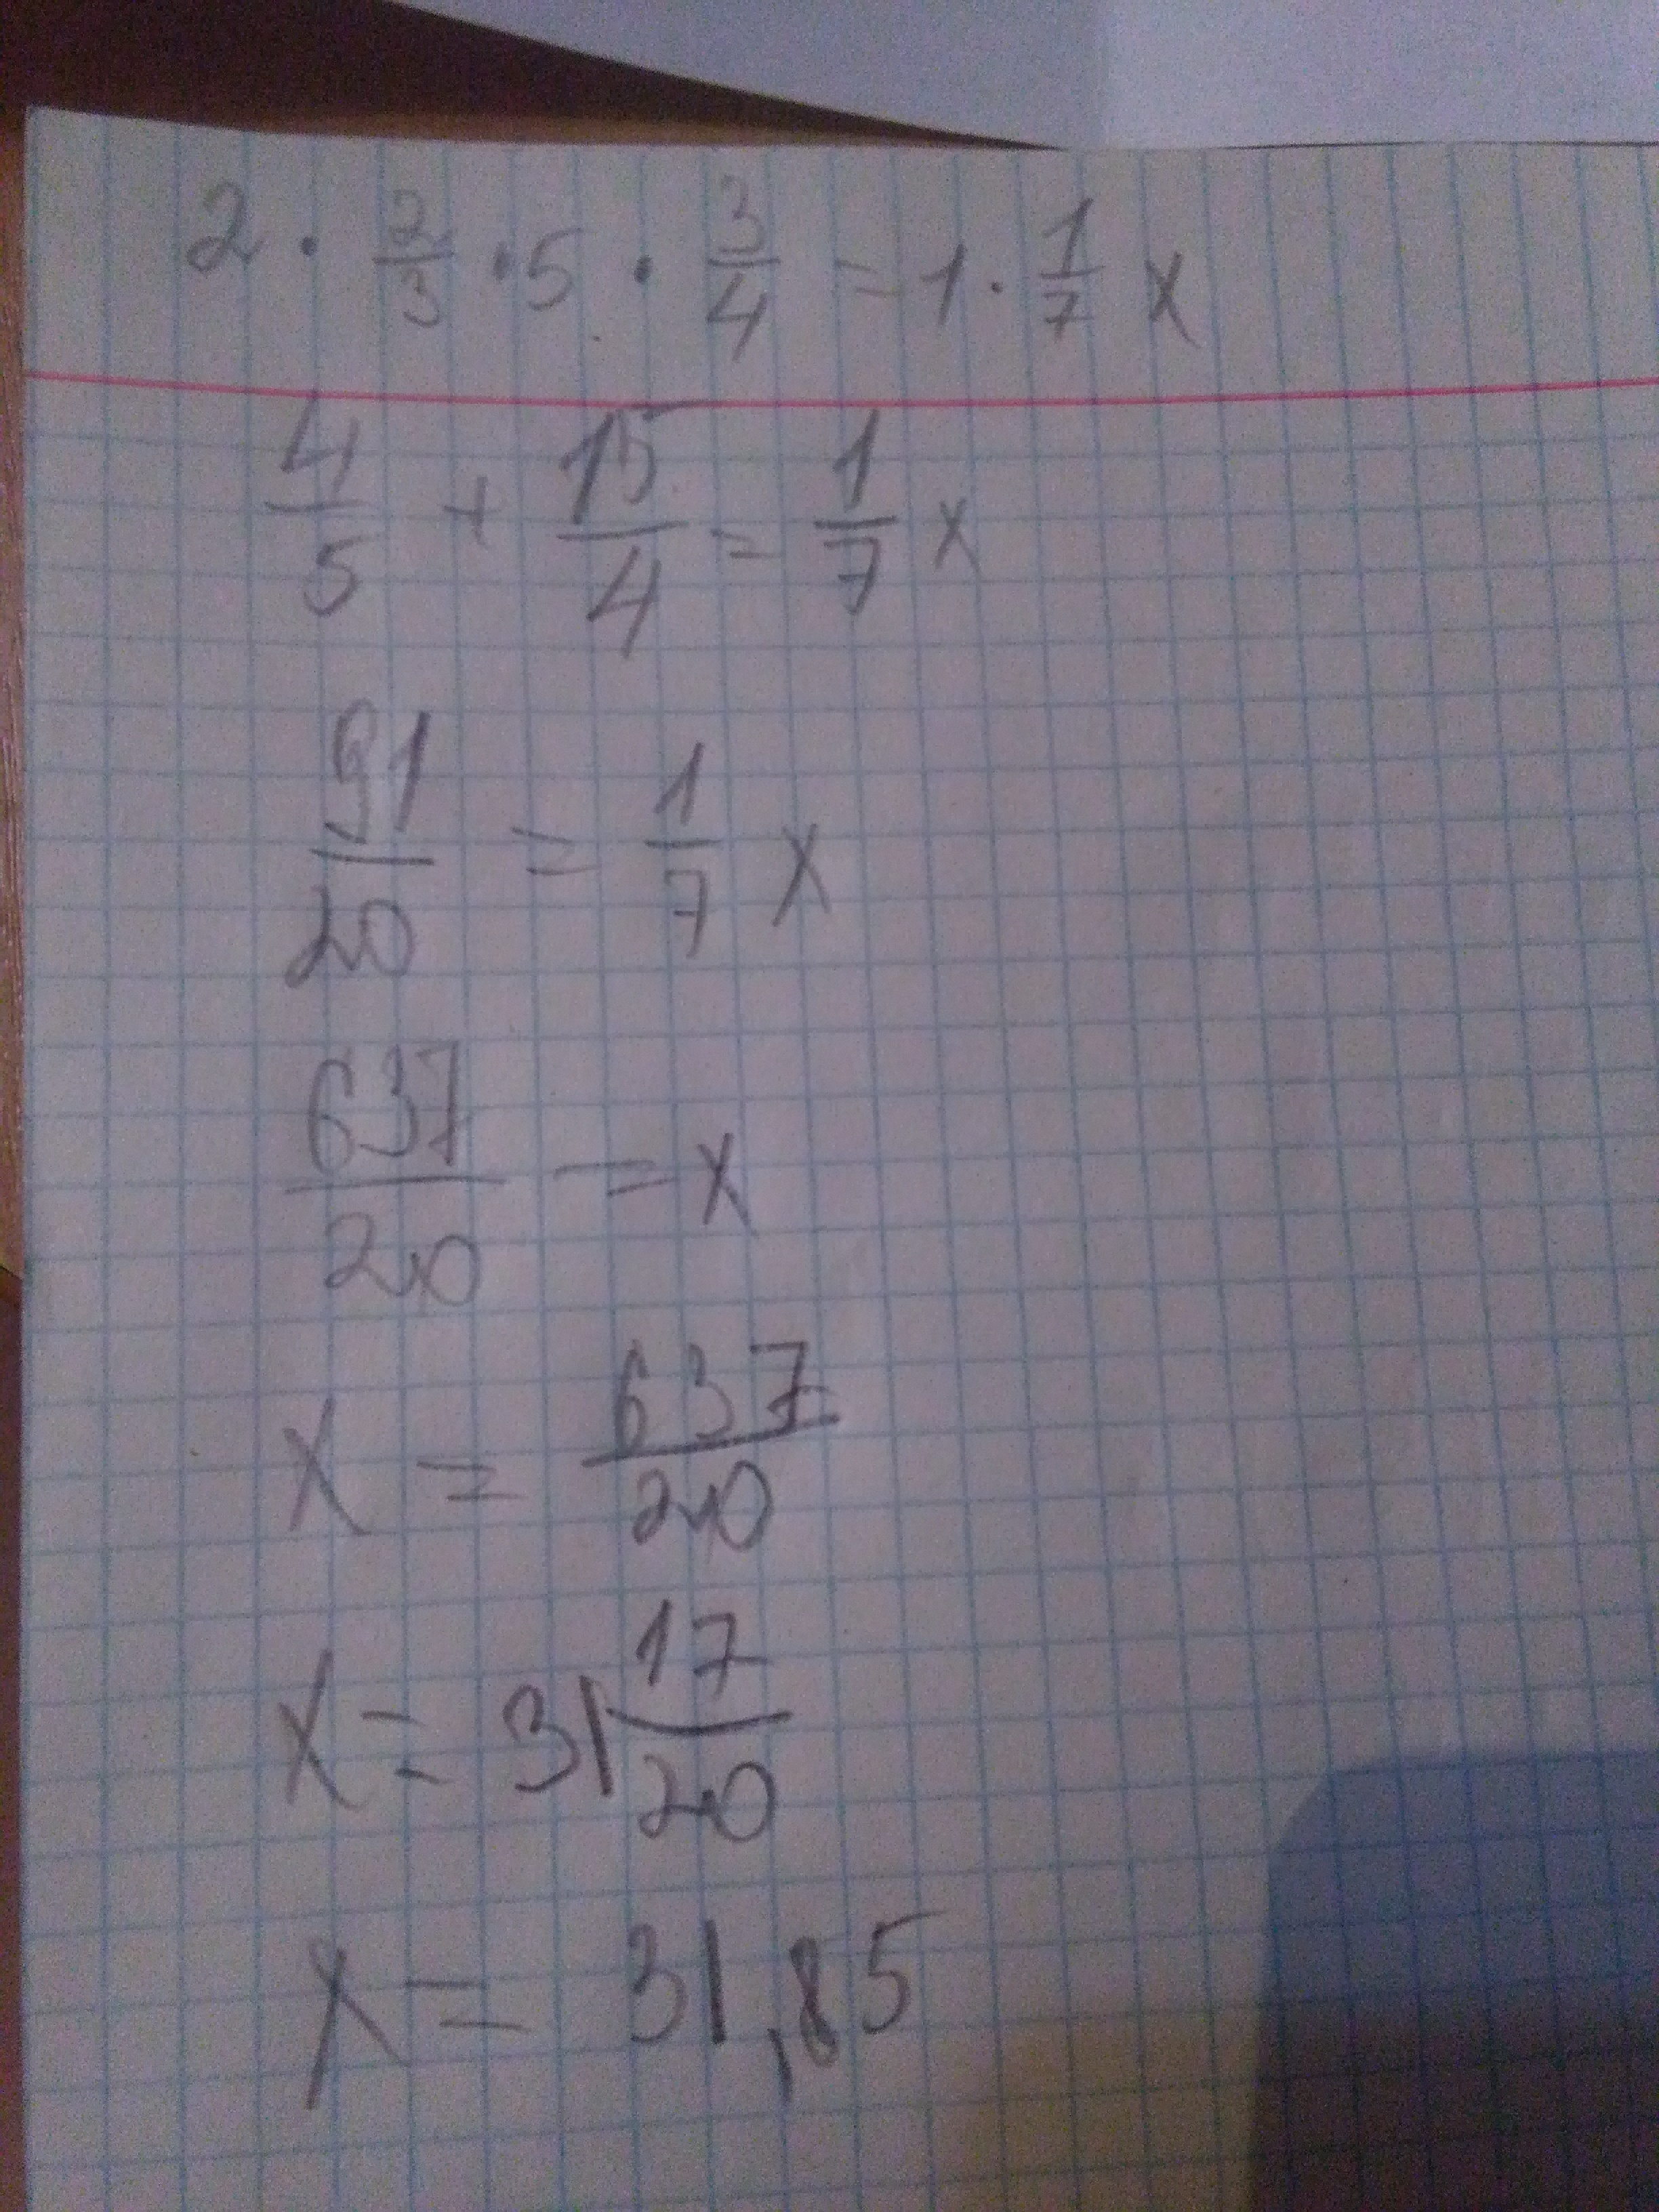 2 · 2/3 · 5 · 3/4 = 1 · 1/7 x
4/5 + 15/4 = 1/7 x
91/20 = 1/7 x
637/20 = x
x = 637/20
x = 31 17/20
x = 31,85